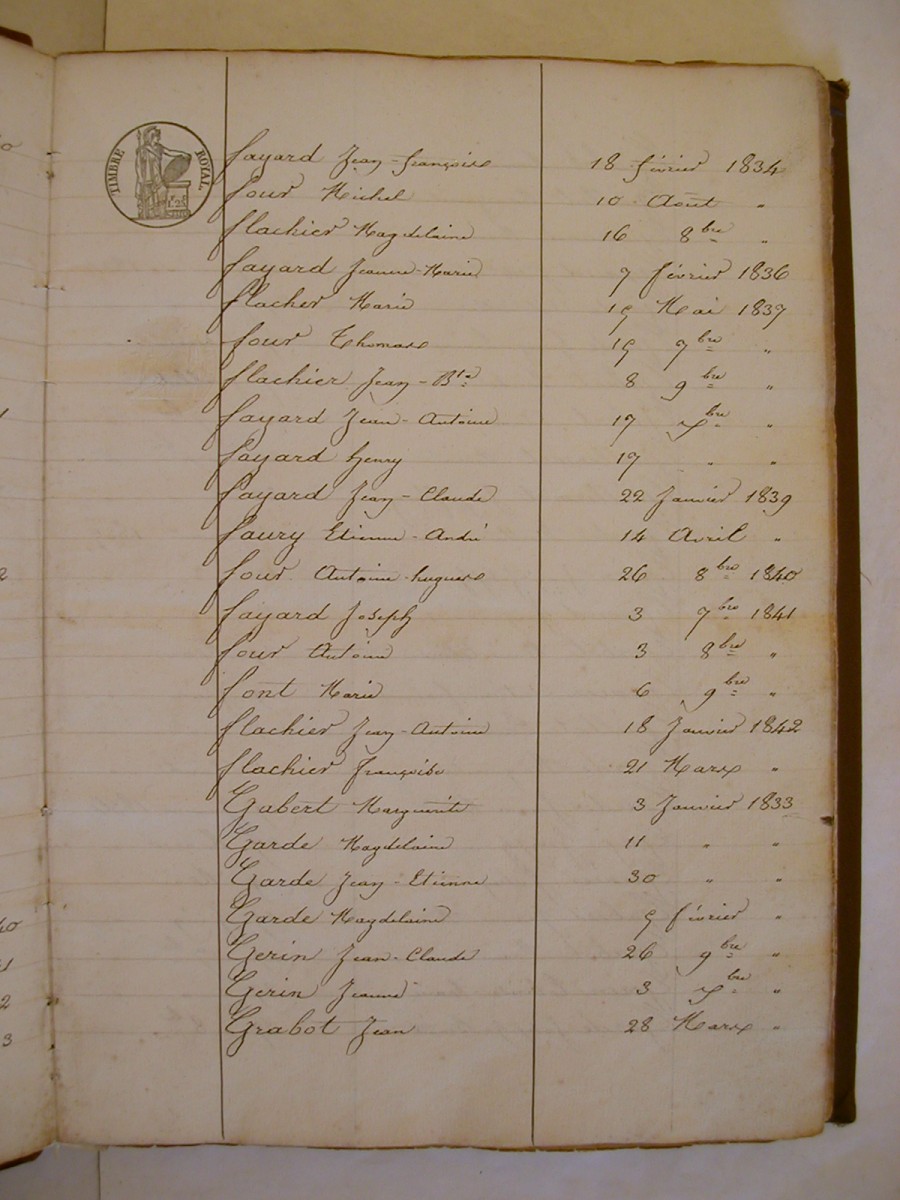 TIMBRE ROYAL
fayard Jean-françoise 18 février 1834
four Michel 10 Août "
flachier Magdelaine 16 8bre "
fayard Jeanne-Marie 7 février 1836
flacher Marie 15 Mai 1837
four Thomase 15 7bre "
flachier Jean-Bte 8 9bre "
fayard Jean-Antoine 17 xbre "
fayard henry 17 " "
fayard Jean-Claude 22 Janvier 1839
faury Etienne-André 14 Avril "
four Antoine-hugues 26 8bre 1840
fayard Joseph 3 7bre 1841
four Antoine 3 8bre "
font Marie 6 9bre "
flachier Jean-Antoine 18 Janvier 1842
flachier françoise 21 Mars "
Gabert Marguerite 3 Janvier 1833
Garde Magdelaine 11 " "
Garde Jean-Etienne 30 " "
Garde Magdelaine 5 février "
Gerin Jean-Claude 26 9bre "
Gerin Jeanne 3 xbre "
Grabot Jean 28 Mars "